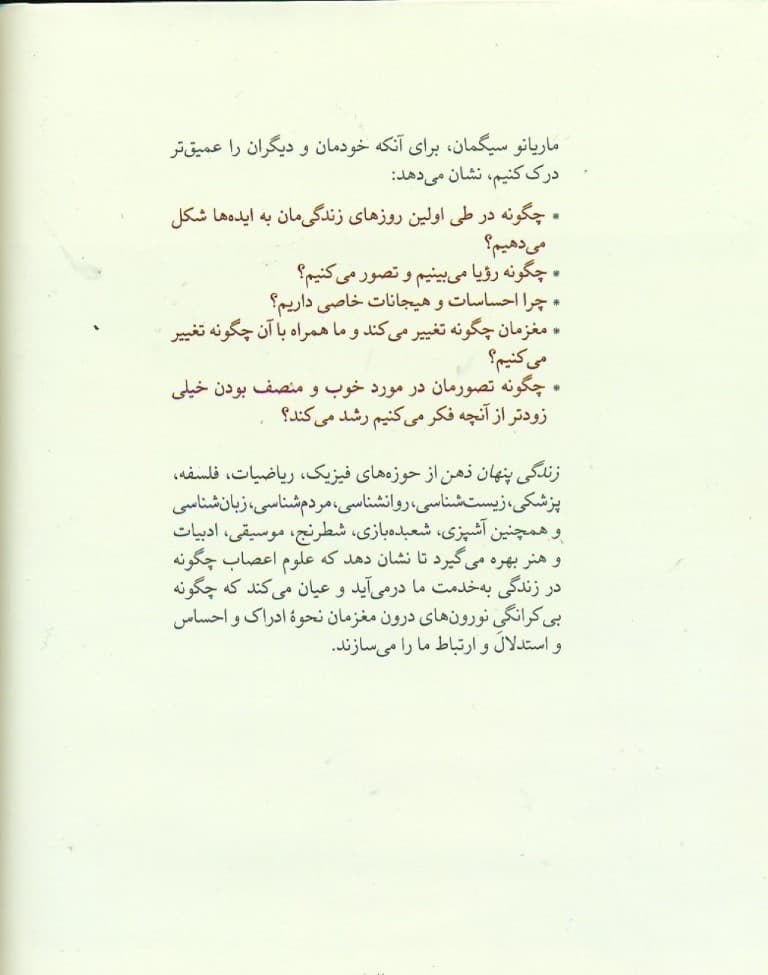 ماریانو سیگمان، برای آنکه خودمان و دیگران را عمیق‌تر
درک کنیم، نشان می‌دهد:
* چگونه در طی اولین روزهای زندگی‌مان به ایده‌ها شکل
می‌دهیم؟
* چگونه رؤیا می‌بینیم و تصور می‌کنیم؟
* چرا احساسات و هیجانات خاصی داریم؟
* مغزمان چگونه تغییر می‌کند و ما همراه با آن چگونه تغییر
می‌کنیم؟
* چگونه تصورمان در مورد خوب و منصف بودن خیلی
زودتر از آنچه فکر می‌کنیم رشد می‌کند؟
زندگی پنهان ذهن از حوزه‌های فیزیک، ریاضیات، فلسفه،
پزشکی، زیست‌شناسی، روانشناسی، مردم‌شناسی، زبان‌شناسی
و همچنین آشپزی، شعبده‌بازی، شطرنج، موسیقی، ادبیات
و هنر بهره می‌گیرد تا نشان دهد که علوم اعصاب چگونه
در زندگی به‌خدمت ما درمی‌آید و عیان می‌کند که چگونه
بی‌کرانگیِ نورون‌های درون مغزمان نحوهٔ ادراک و احساس
و استدلال و ارتباط ما را می‌سازند.